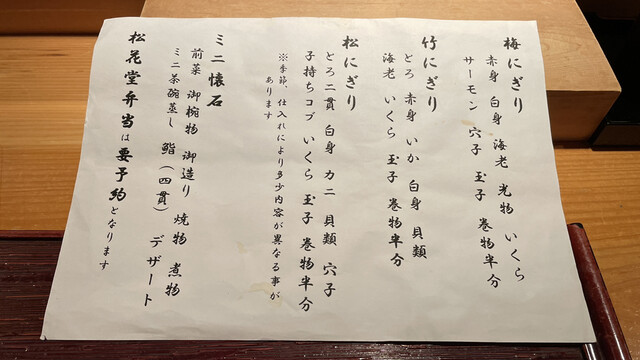 梅にぎり
赤身 白身 海老 光物 いくら
サーモン 穴子 玉子 巻物半分
竹にぎり
とろ 赤身 いか 白身 貝類
海老 いくら 玉子 巻物半分
松にぎり
とろ二貫 白身 カニ 貝類 穴子
子持ちコブ いくら 玉子 巻物半分
※季節、仕入れにより多少内容が異なる事が
あります
ミニ懐石
前菜 御椀物 御造り 焼物 煮物
ミニ茶碗蒸し 鮨（四貫） デザート
松花堂弁当は要予約となります